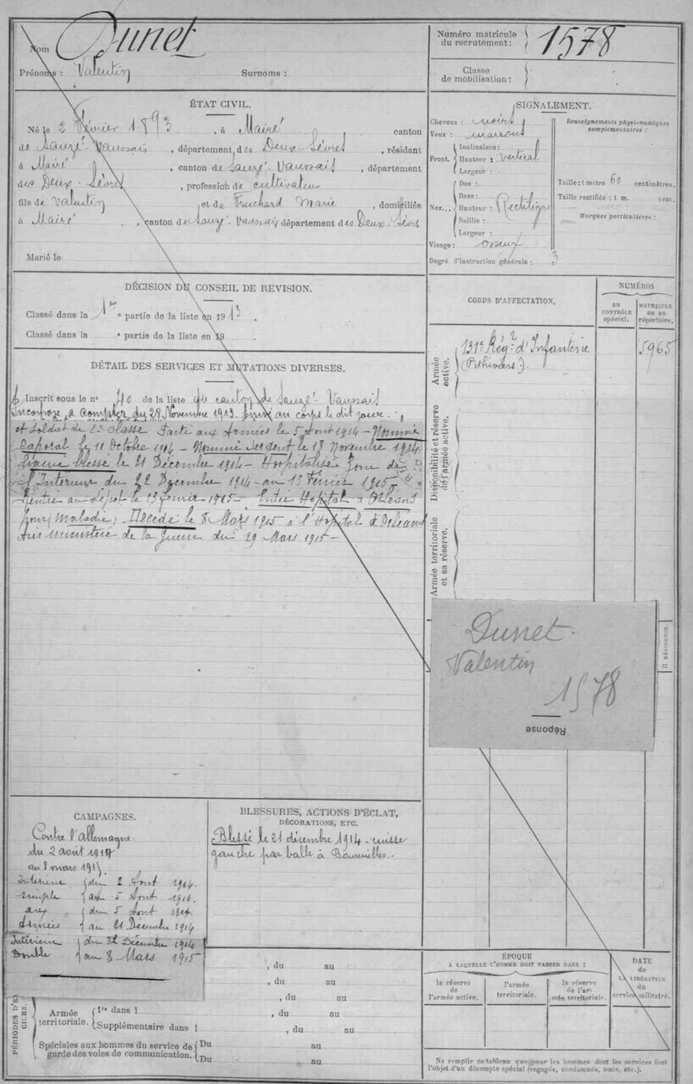 Nom Dunet
Prénoms : Valentin Surnoms :
Numéro matricule du recrutement : 1578
Classe de mobilisation :
ÉTAT CIVIL.
Né le 2 Février 1893, à Mairé canton
de Sauzé-Vaussais, département des Deux-Sèvres, résidant
à Mairé, canton de Sauzé-Vaussais, département
des Deux-Sèvres, profession de cultivateur
fils de Valentin et de Fruchard Marie, domiciliés
à Mairé, canton de Sauzé-Vaussais département des Deux-Sèvres
Marié le
SIGNALEMENT.
Cheveux : noirs
Yeux : marrons
Front. Inclinaison :
Hauteur : vertical
Largeur :
Nez... Dos :
Base :
Hauteur : Rectiligne
Saillie :
Largeur :
Visage : osseux
Degré d'instruction générale : 3
Renseignements physionomiques complémentaires :
Taille : 1 mètre 60 centimètres.
Taille rectifiée : 1 mèt. cent.
Marques particulières :
DÉCISION DU CONSEIL DE REVISION.
Classé dans la 1re partie de la liste en 1913
Classé dans la e partie de la liste en 19
DÉTAIL DES SERVICES ET MUTATIONS DIVERSES.
Inscrit sous le n° 40 de la liste du canton de Sauzé-Vaussais
Incorporé à compter du 29 Novembre 1913. au corps le dit jour
et Soldat de 2e classe Parti aux Armées le 5 Aout 1914 - Nommé
Caporal le 11 Octobre 1914 - Nommé Sergent le 18 Novembre 1914
blessé le 21 Décembre 1914 - Hospitalisé Zone de
l'Intérieur du 22 Décembre 1914 au 13 Février 1915 -
Rentré au dépôt le 13 février 1915 - Entre Hopital à Orléans
pour (maladie). Décédé le 8 Mars 1915 à l'Hopital d'Orléans
Avis ministère de la Guerre du 29 Mars 1915 -
CORPS D'AFFECTATION.
NUMÉROS
AU CONTRÔLE SPÉCIAL.
MATRICULE OU AU RÉPERTOIRE.
Armée active.
131e Régt d'Infanterie
(Pithiviers.)
5965
Disponibilité et réserve de l'armée active.
Armée territoriale et sa réserve.
Dunet
Valentin
1578
Réponse
CAMPAGNES.
Contre l'allemagne
du 2 août 1914
au 8 mars 1915.
Intérieur du 2 Aout 1914.
simple au 5 Aout 1914.
aux du 5 Aout 1914.
Armées au 21 Décembre 1914
Intérieur du 22 Décembre 1914
Double au 8 Mars 1915
BLESSURES, ACTIONS D'ÉCLAT,
DÉCORATIONS, ETC.
Blessé le 21 décembre 1914 - cuisse
gauche par balle à
, du au
, du au
, du au
Armée territoriale. 1re dans l , du au
Supplémentaire dans l , du au
Spéciales aux hommes du service de garde des voies de communication. Du au
Du au
ÉPOQUE
A LAQUELLE L'HOMME DOIT PASSER DANS :
la réserve de l'armée active.
l'armée territoriale.
la réserve de l'armée territoriale.
DATE de LA LIBÉRATION du service militaire.
Ne remplir ce tableau que pour les hommes dont les services font
l'objet d'un décompte spécial (engagés, condamnés, omis, etc.).